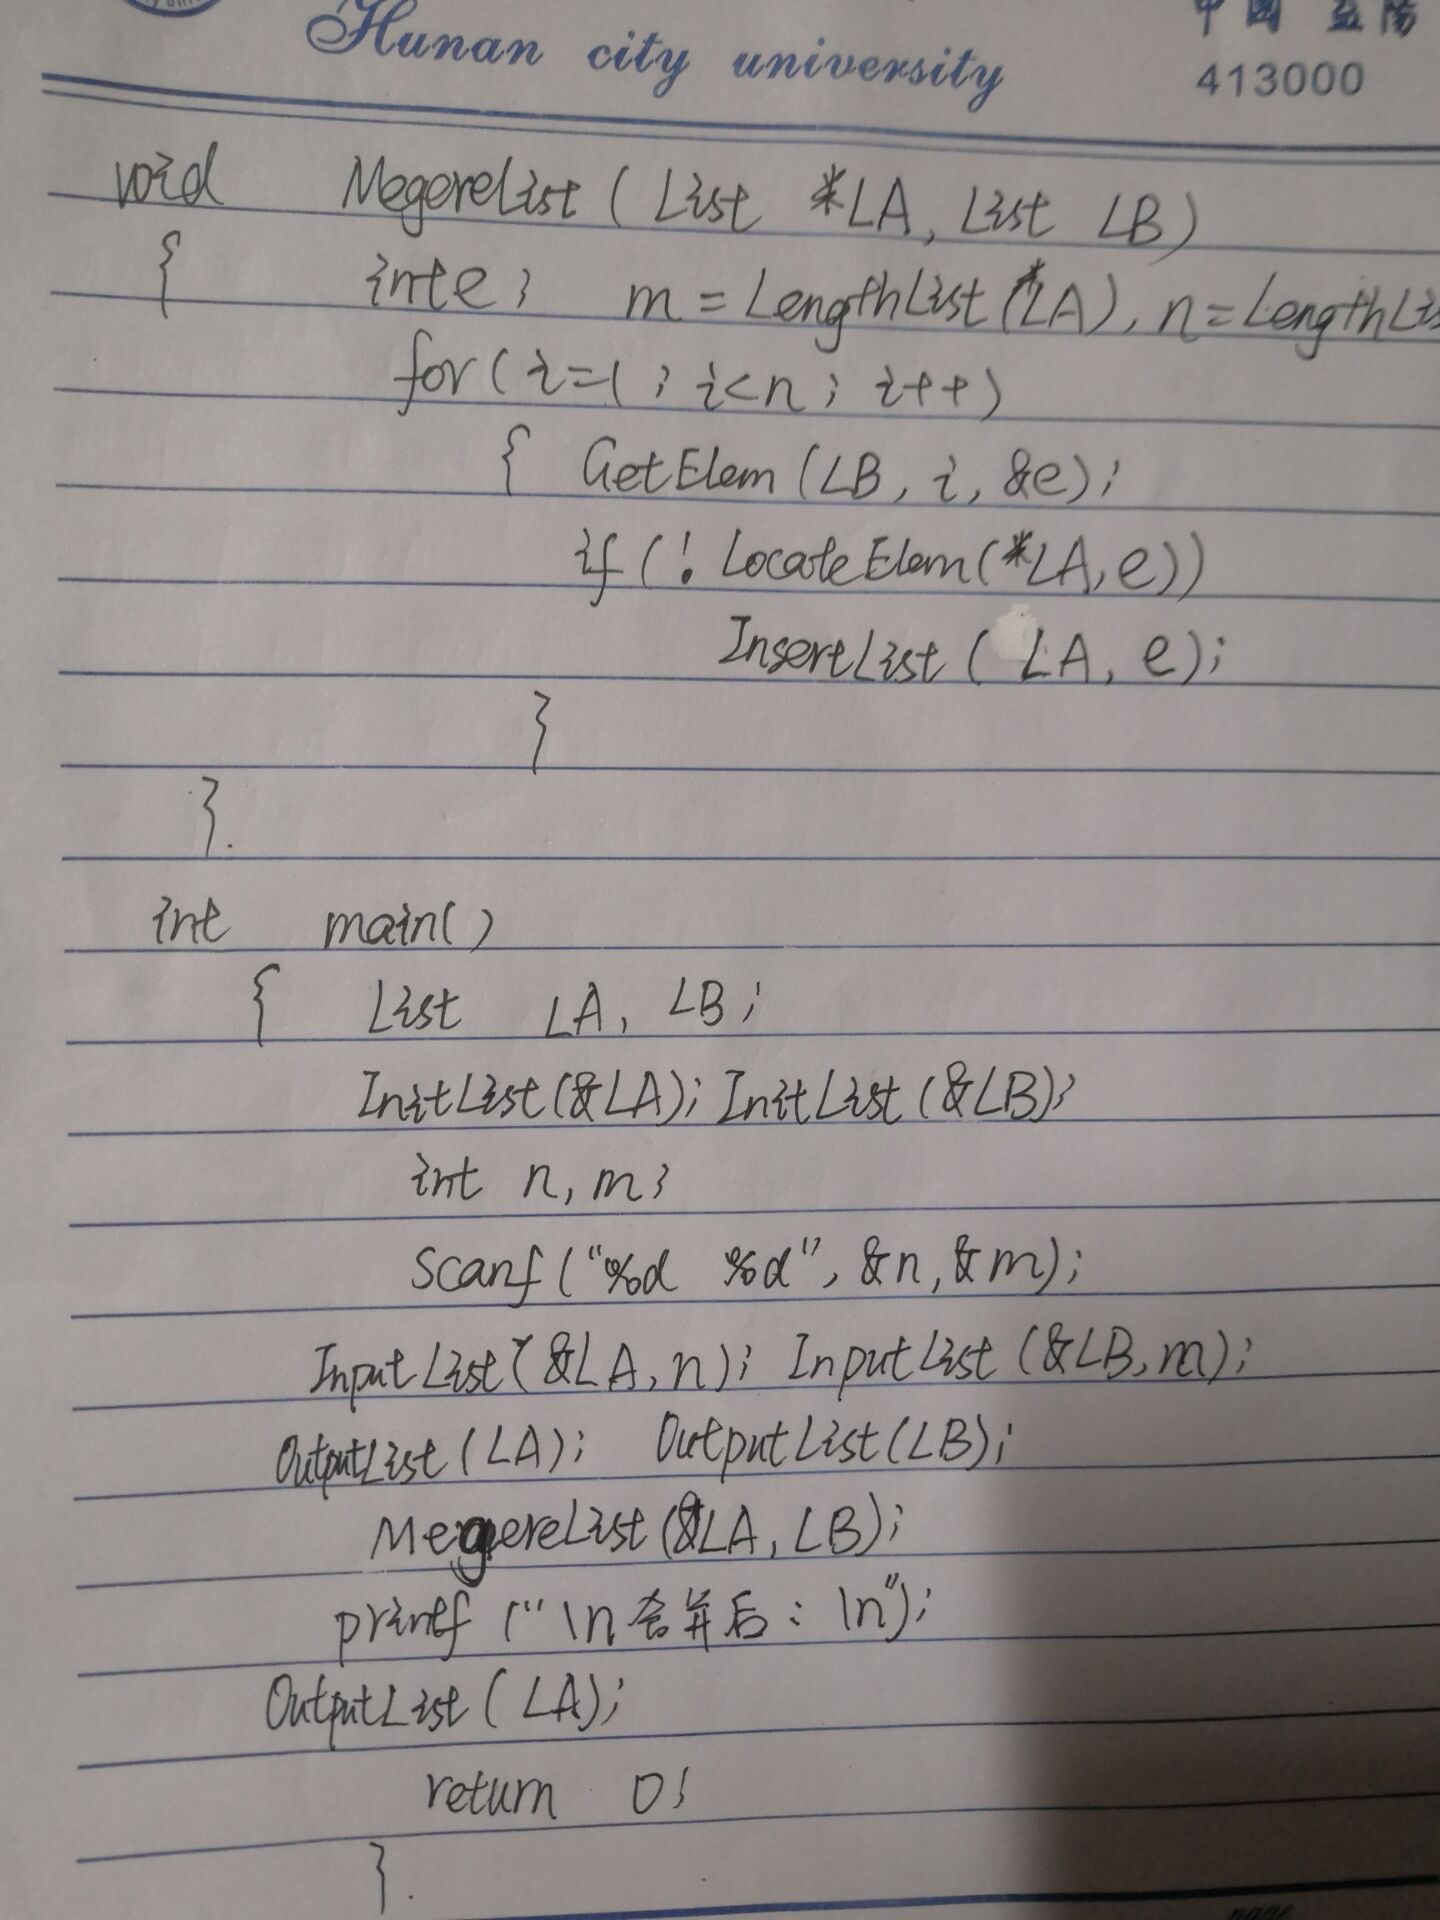 Hunan city university
中國 益陽
413000
void MegereList ( List *LA, List LB )
{ int e; m = LengthList (*LA), n = LengthLis
for ( i=1 ; i<n ; i++ )
{ GetElem (LB, i, &e);
if ( ! LocateElem(*LA, e))
InsertList ( LA, e);
}
}.
int main()
{ List LA, LB;
InitList(&LA); InitList (&LB);
int n, m;
Scanf ("%d %d", &n, &m);
InputList (&LA, n); InputList (&LB, m);
OutputList (LA); OutputList (LB);
MegereList (&LA, LB);
printf ("\n合并后：\n");
OutputList ( LA);
return 0;
}.